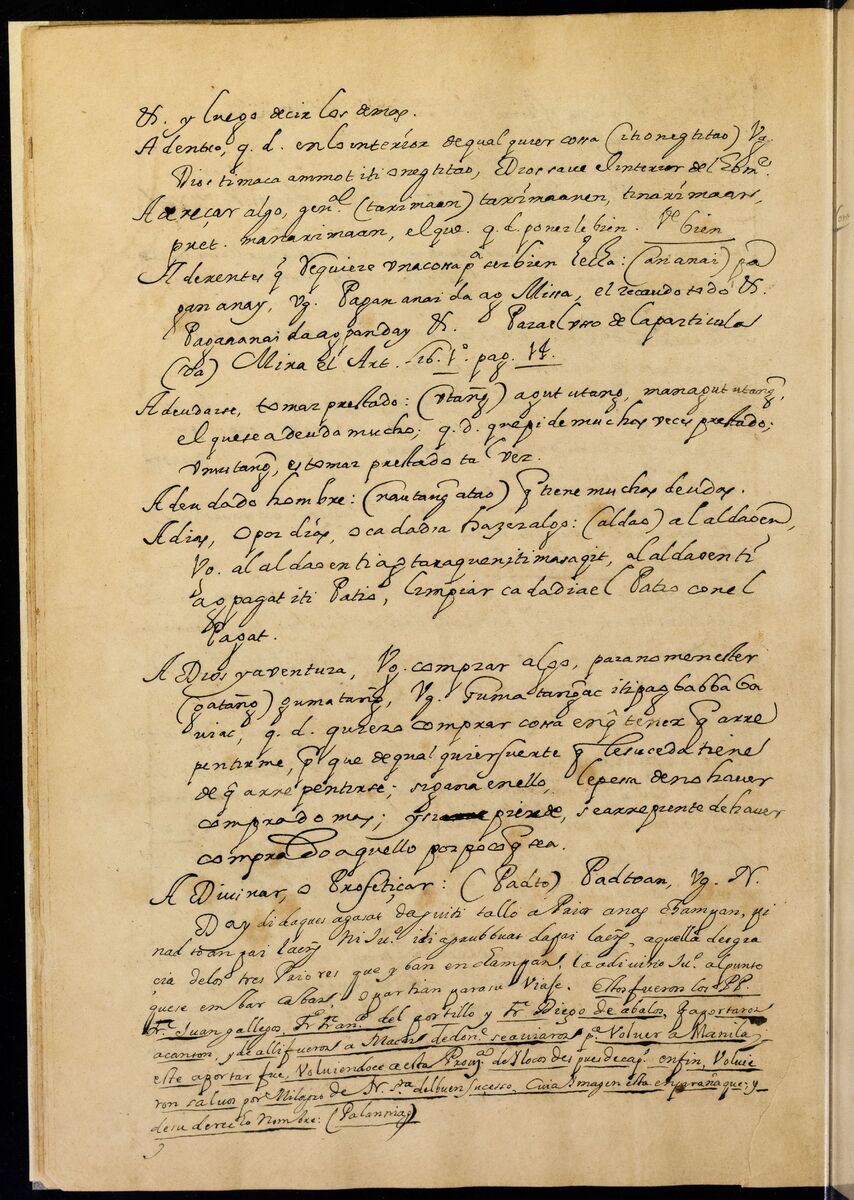 &. y luego decir los demas.
Adentro, q. d. en lo interior de qual quier cossa (iti onegtitao) Vg.
Dios ti maca ammot iti onegtitao, Dios saue el interior del
Adereçar algo, (tarimaan) tarimaanen, tinarimaan,
pret. manarimaan, el que. q. d. ponerle bien. Vᵉ bien
Aderentes q̃ Requiere vna cossa pᵃ ser bien : (an anai) pa
gan anay, vg. Pagan anai da ag Missa, el recaudo todo &.
Pagananai da ag panday &. Para el vsso de la particula
(da) Mira el Art. Lib. 1º. pag.
Adeudarse, tomar prestado: (vtang̃) agut utang, managut utang̃,
el que se adeuda mucho; q. d. que pide muchas veces prestado;
vmutang̃, es tomar prestado tal vez.
Adeudado hombre: (nautang̃ atao) q̃ tiene muchas deudas.
A dias, o por dias, o cada dia hazer algo: (aldao) al aldaoen,
Vg. al aldaoen ti ag taraquen iti masagit, al aldaoen ti
ag pagat iti Patio, limpiar cada dia el Patio con el
Pagat.
A Dios y aventura, Vg. comprar algo, para no menester
(gatang̃) gumatang̃, Vg. Gumatang̃ac iti pag babbaba
uiac, q. d. quiero comprar cossa en q̃ tener q̃ arre
pentirme, pʳ que de qual quier suerte q̃ le suceda tiene
de q̃ arrepentirse; si gana en ello, le pessa de no hauer
comprado mas; y si pierde, se arrepiente de hauer
comprado aquello por poco q̃ sea.
A Diuinar, o Profetiçar: (Padto) Padtoan, Vg. N.
Day di daques agasat da tallo a Prior anag Champan, pi
nadtoan pai laeng̃ ni Juº. idi agrubbuat da pai laeng̃, aquella desgra
cia de los tres Priores que yban en Champan, la adiuino Juº. al punto
que se embarcaban, o partian para su viaje. Estos fueron los PP.
Fr. Juan gallegos, Fr. Franᶜᵒ del portillo y Fr. Diego de abalos, q̃ aportaron
a canton, y de alli fueron a Macan de donᵉ se auiaron pᵃ Volver a Manila,
este aportar fue Voluiendoce a esta Prouᵃ de Ylocos despues de capᵒ. en fin, Voluie
ron saluos por Milagro de Nᵃ. Sʳᵃ. del buen suçesso, Cuia Imagen esta en parañaque; y
de su derecho Nombre: (Palanñag)